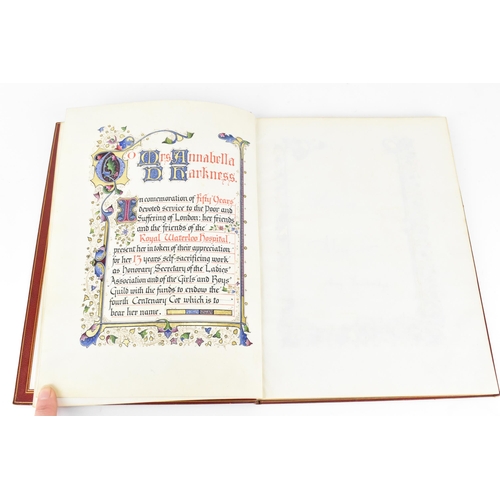 To Mrs Annabella
D Harkness.
In comemoration of Fifty Years'
devoted service to the Poor and
Suffering of London: her friends
and the friends of the
Royal Waterloo Hospital,
present her in token of their appreciation
for her 13 years self-sacrificing work
as Honorary Secretary of the Ladies'
Association and of the Girls and Boys'
Guild with the funds to endow the
fourth Centenary Cot which is to
bear her name.